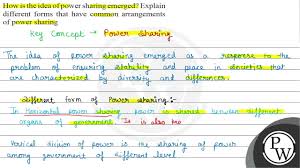 How is the idea of power sharing emerged? Explain
different forms that have common arrangements
of power sharing
Key Concept → Power Sharing
The idea of power sharing emerged as a response to the
problem of ensuring stability and peace in societies that
are characterized by diversity and differences.
Different form of Power sharing:-
In Horizontal power sharing power is shared between different
organs of government. It is also
Vertical division of power is the sharing of power
among government of different level
PW